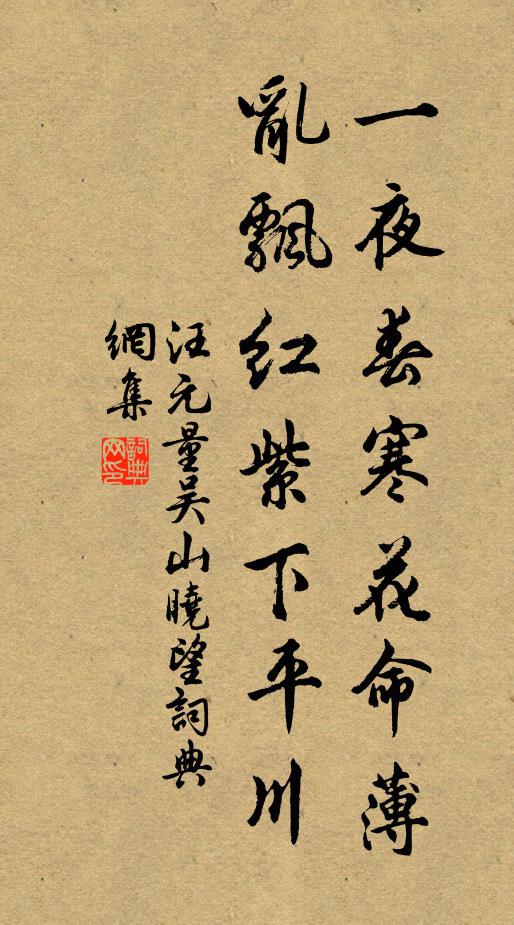 一夜春寒花命薄
亂飄紅紫下平川
汪元量吳山曉望詞典
網集
詞典网印